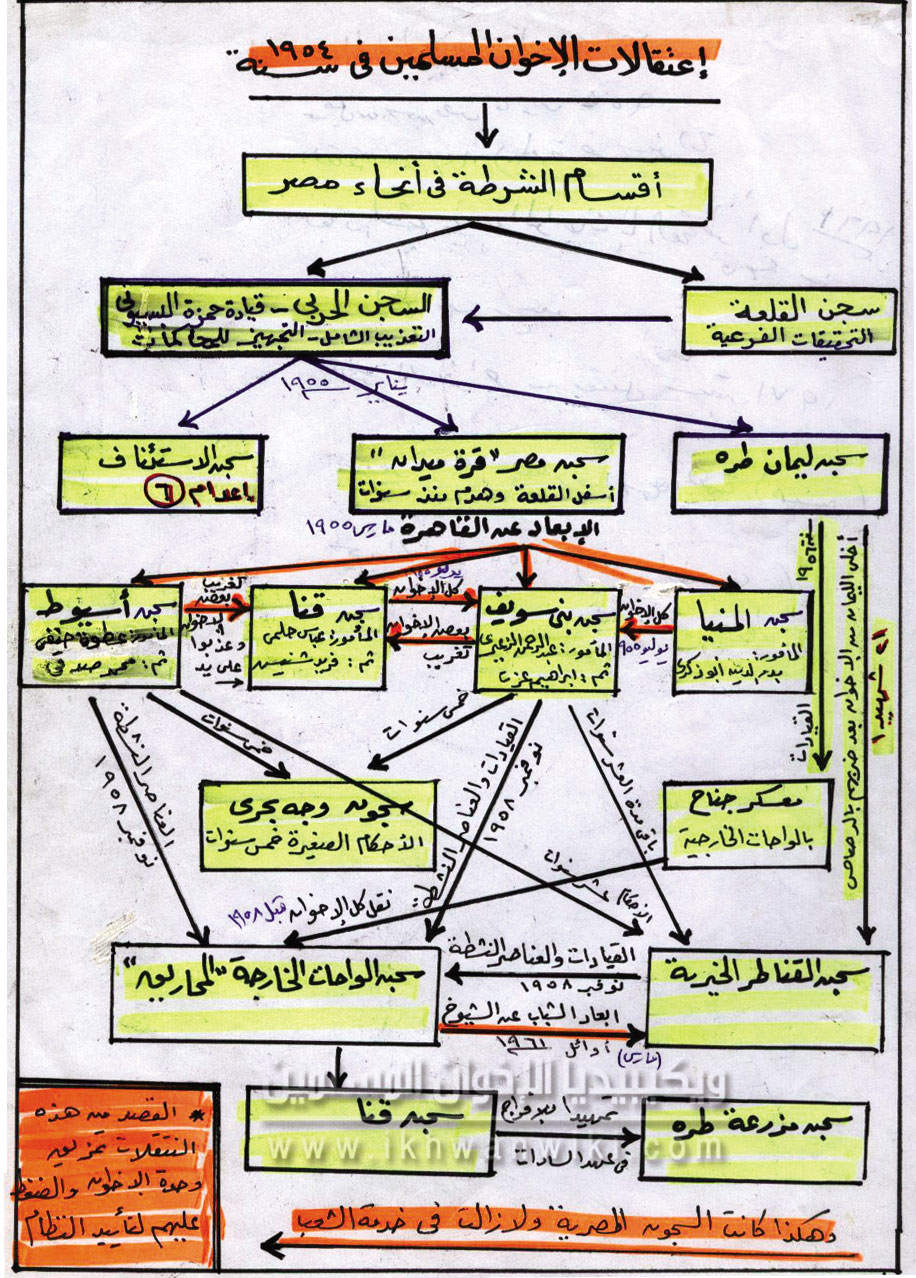 إعتقالات الإخوان المسلمين فى سنة ١٩٥٤
أقسام الشرطة فى أنحاء مصر
سجن القلعة
التحقيقات الفرعية
السجن الحربي - قيادة حمزة البسيونى
التعذيب الشامل - التجهيز للمحاكمات
يناير ١٩٥٥
سجن ليمان طره
سجن مصر "قرة ميدان"
أسفل القلعة وهدم منذ سنوات
سجن الاستئناف
إعدام ٦
الإبعاد عن القاهرة مارس ١٩٥٥
سجن المنيا
المأمور:
بدر الدين أبوذكرى
كل الإخوان
يوليو ٩٥٥
سجن بنى سويف
المأمور: عبد الرحمن الزعيرى
ثم: ابراهيم عزت
كل الإخوان
بعض الإخوان
تغريب
سجن قنا
المأمور: عباس حلمى
ثم: فريد شنيشن
تغريب
بعض
الإخوان
وعذبوا
على يد
سجن أسيوط
المأمور: عطوة حنفى
ثم: محمد صبحى
سنة ١٩٥٦
القيادات
أخلى الليمان من الإخوان بعد ضربهم بالرصاص
٢١ شهيدا
العناصر النشطة
نوفمبر ١٩٥٨
خمس سنوات
خمس سنوات
القيادات والعناصر النشطة
نوفمبر ١٩٥٨
باقى مدة العشر سنوات
الأحكام عشر سنوات
سجون وجه بحرى
الأحكام الصغيرة خمس سنوات
معسكر جناح
بالواحات الخارجية
نقل كل الإخوان قبل ١٩٥٨
سجن القناطر الخيرية
القيادات والعناصر النشطة
نوفمبر ١٩٥٨
سجن الواحات الخارجة "المحاريق"
ابعاد الشباب عن الشيوخ
أوائل ١٩٦١ (مارس)
ويكيبيديا الإخوان المسلمين
www.ikhwanwiki.com
سجن قنا
تمهيدا للإفراج
فى عهد السادات
سجن مزرعة طره
* القصد من هذه
التنقلات تمزيق
وحدة الإخوان والضغط
عليهم لتأييد النظام
وهكذا كانت السجون المصرية ولازالت فى خدمة الشعب